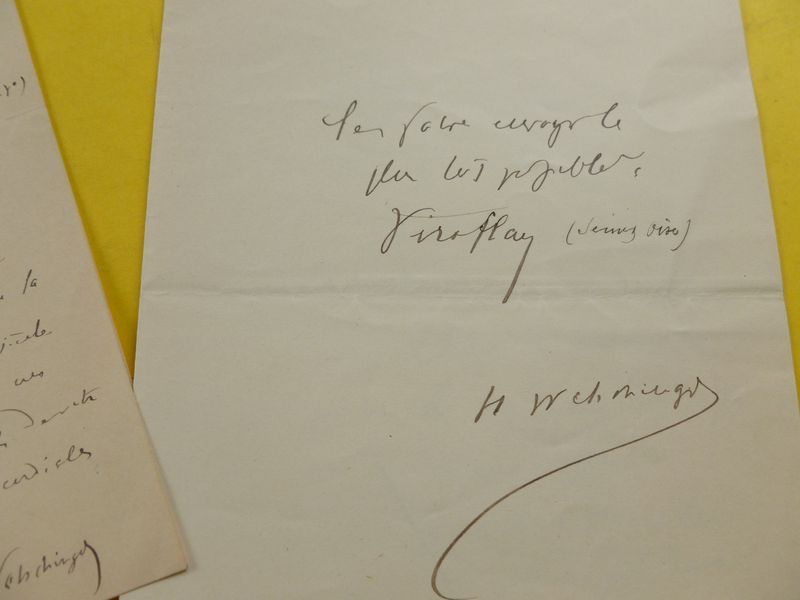 les faire envoyer le
plus tôt possible.
Viroflay (Seine & Oise)
H Welschinger
la
ces
cordiales
Welschinger